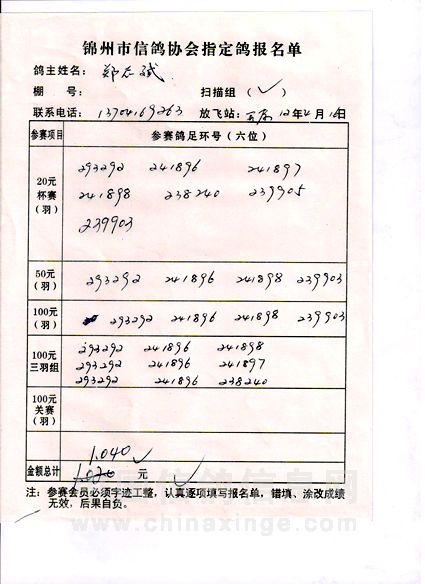 锦州市信鸽协会指定鸽报名单
鸽主姓名：郑志斌
棚 号： 扫描组（✓）
联系电话：13704169263 放飞站： 12年4月16日
参赛项目 参赛鸽足环号（六位）
20元 293292 241896 241897
杯赛 241898 238240 239905
（羽） 239903
50元
（羽） 293292 241896 241898 239903
100元
（羽） 293292 241896 241898 239903
100元 293292 241896 241898
三羽组 293292 241896 241897
293292 241896 238240
100元
关赛
（羽）
1.040 ✓
金额总计 元 ✓
注：参赛会员必须字迹工整，认真逐项填写报名单，错填、涂改成绩
无效，后果自负。
www.chinaxinge.com